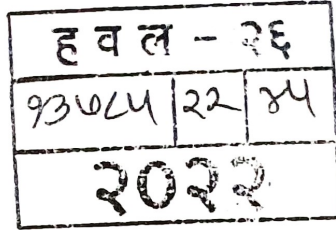 ह व ल - २६
१३७८५ २२ ४५
२०२२